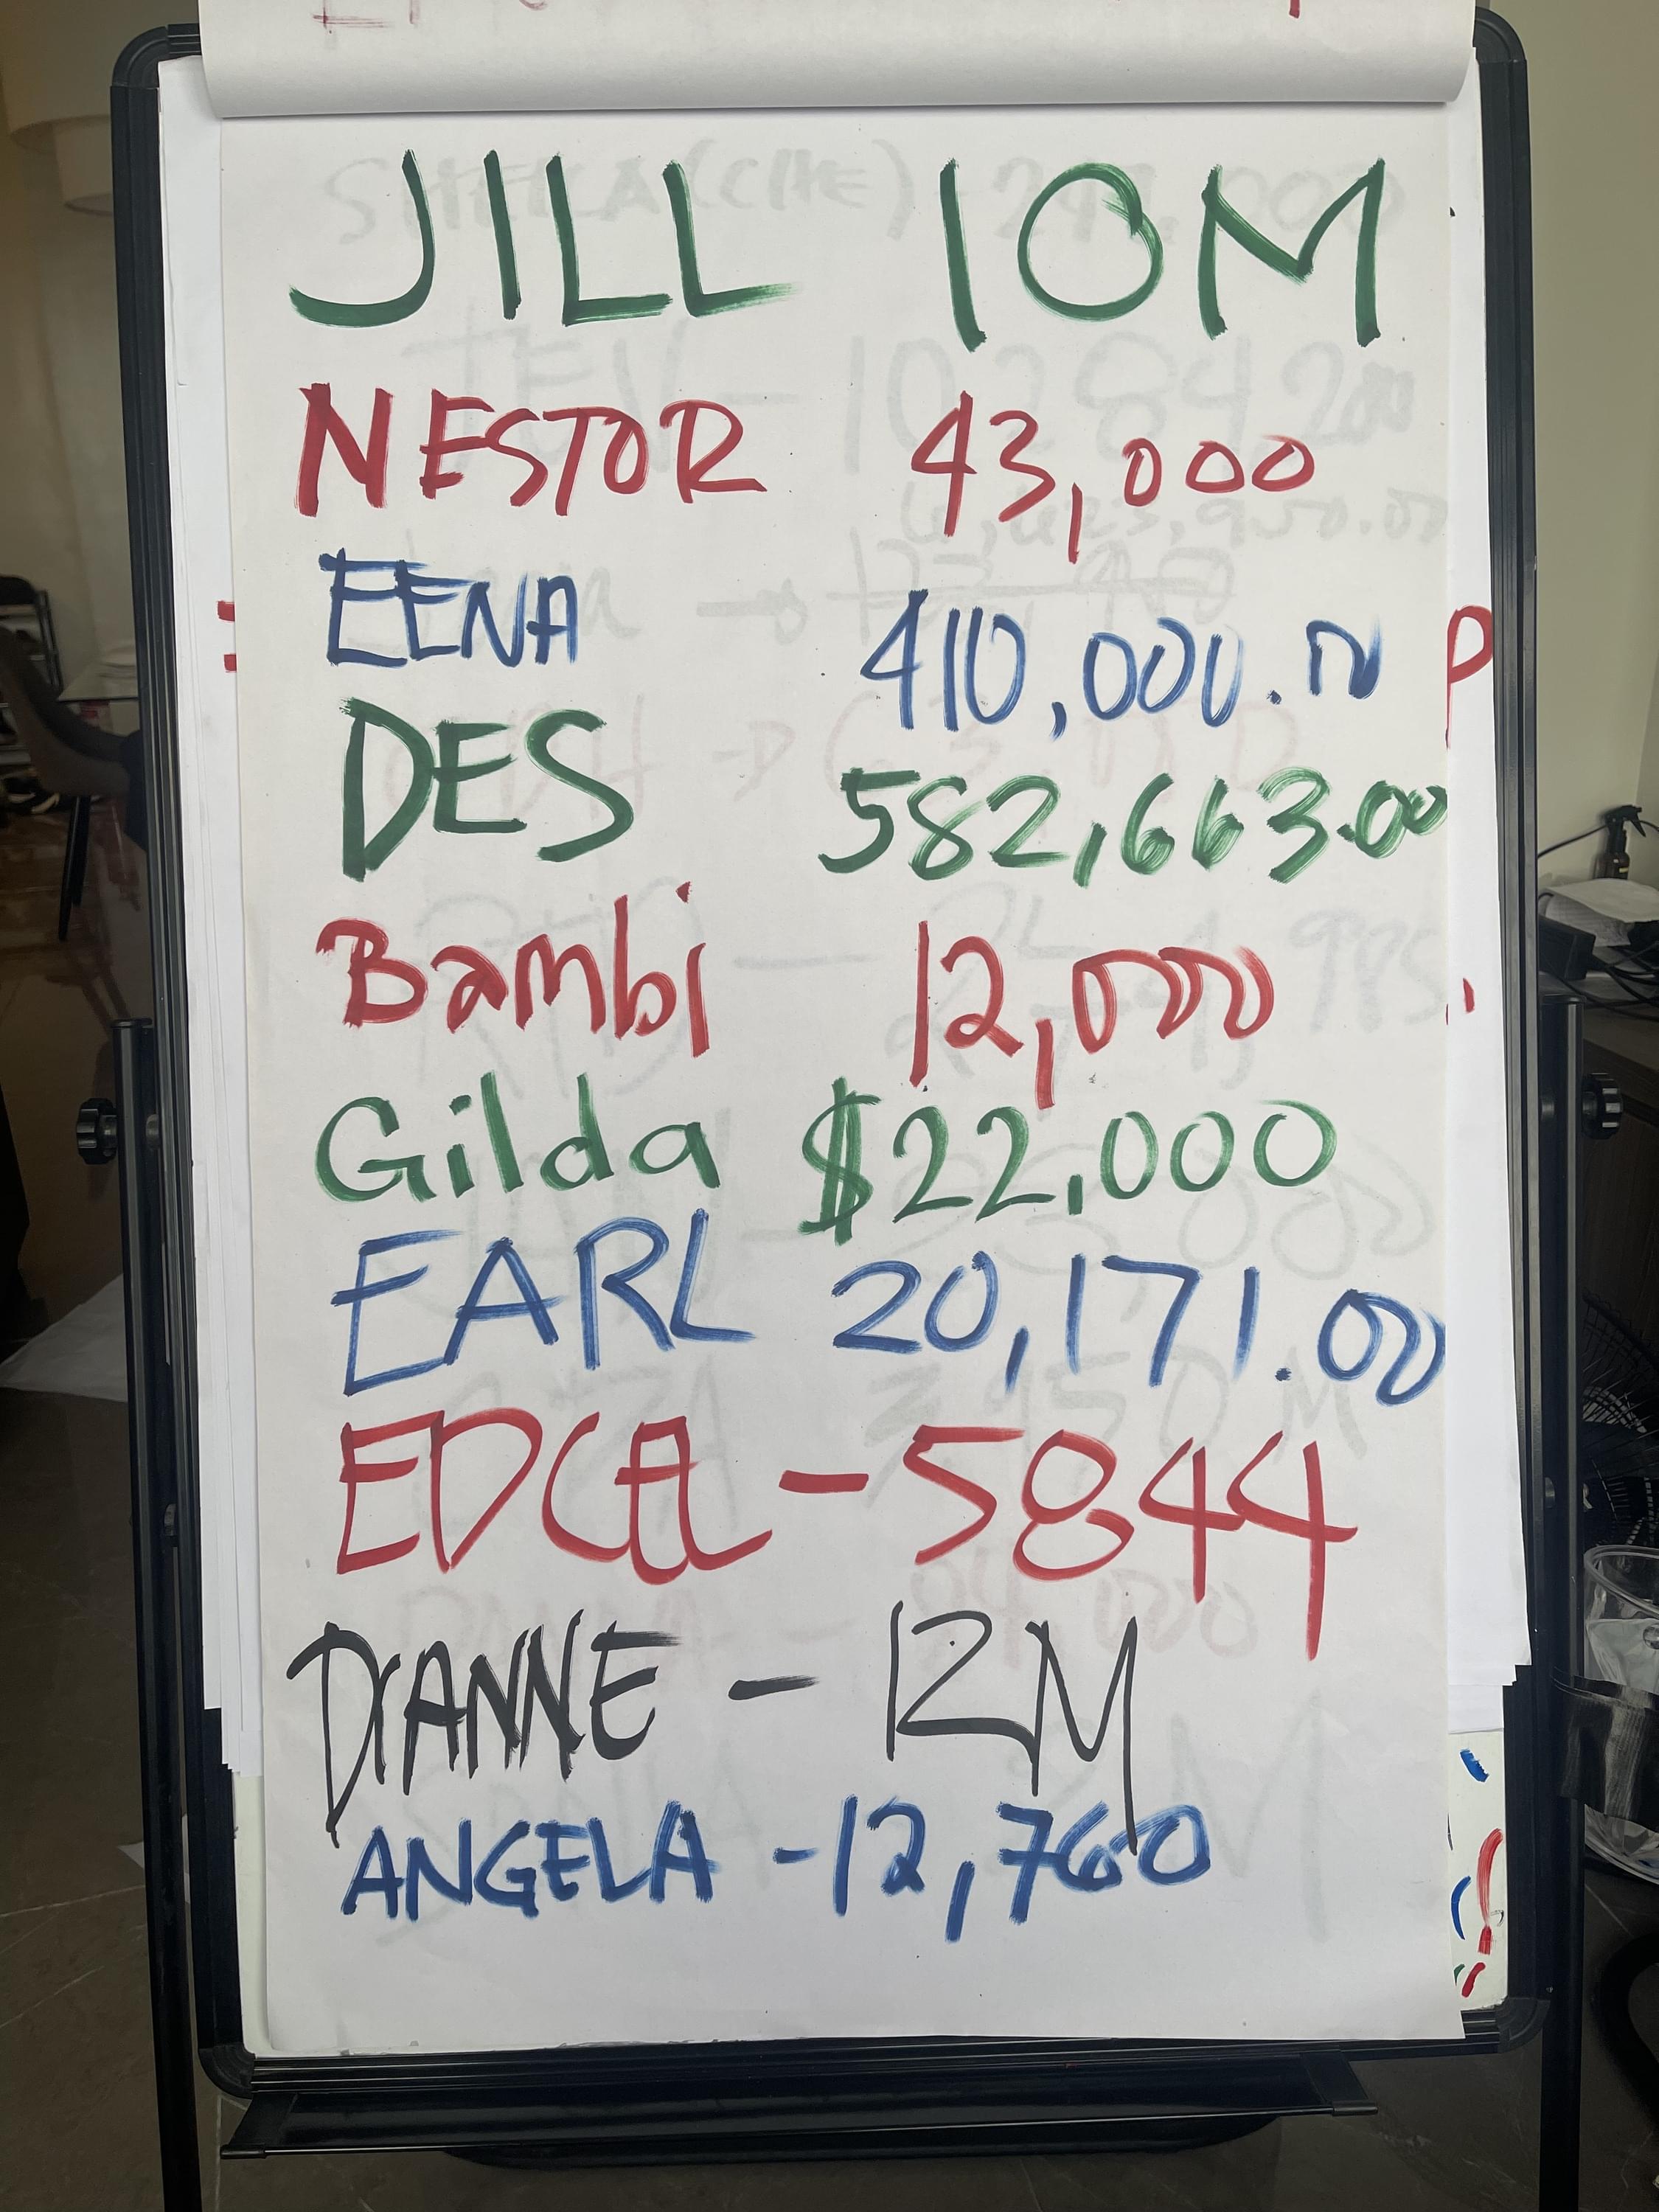 JILL 10M
NESTOR 43,000
EENA 410,000.00
DES 582,663.00
Bambi 12,000
Gilda $22,000
EARL 20,171.00
EDCEL - 5844
DIANNE - 12M
ANGELA - 12,760